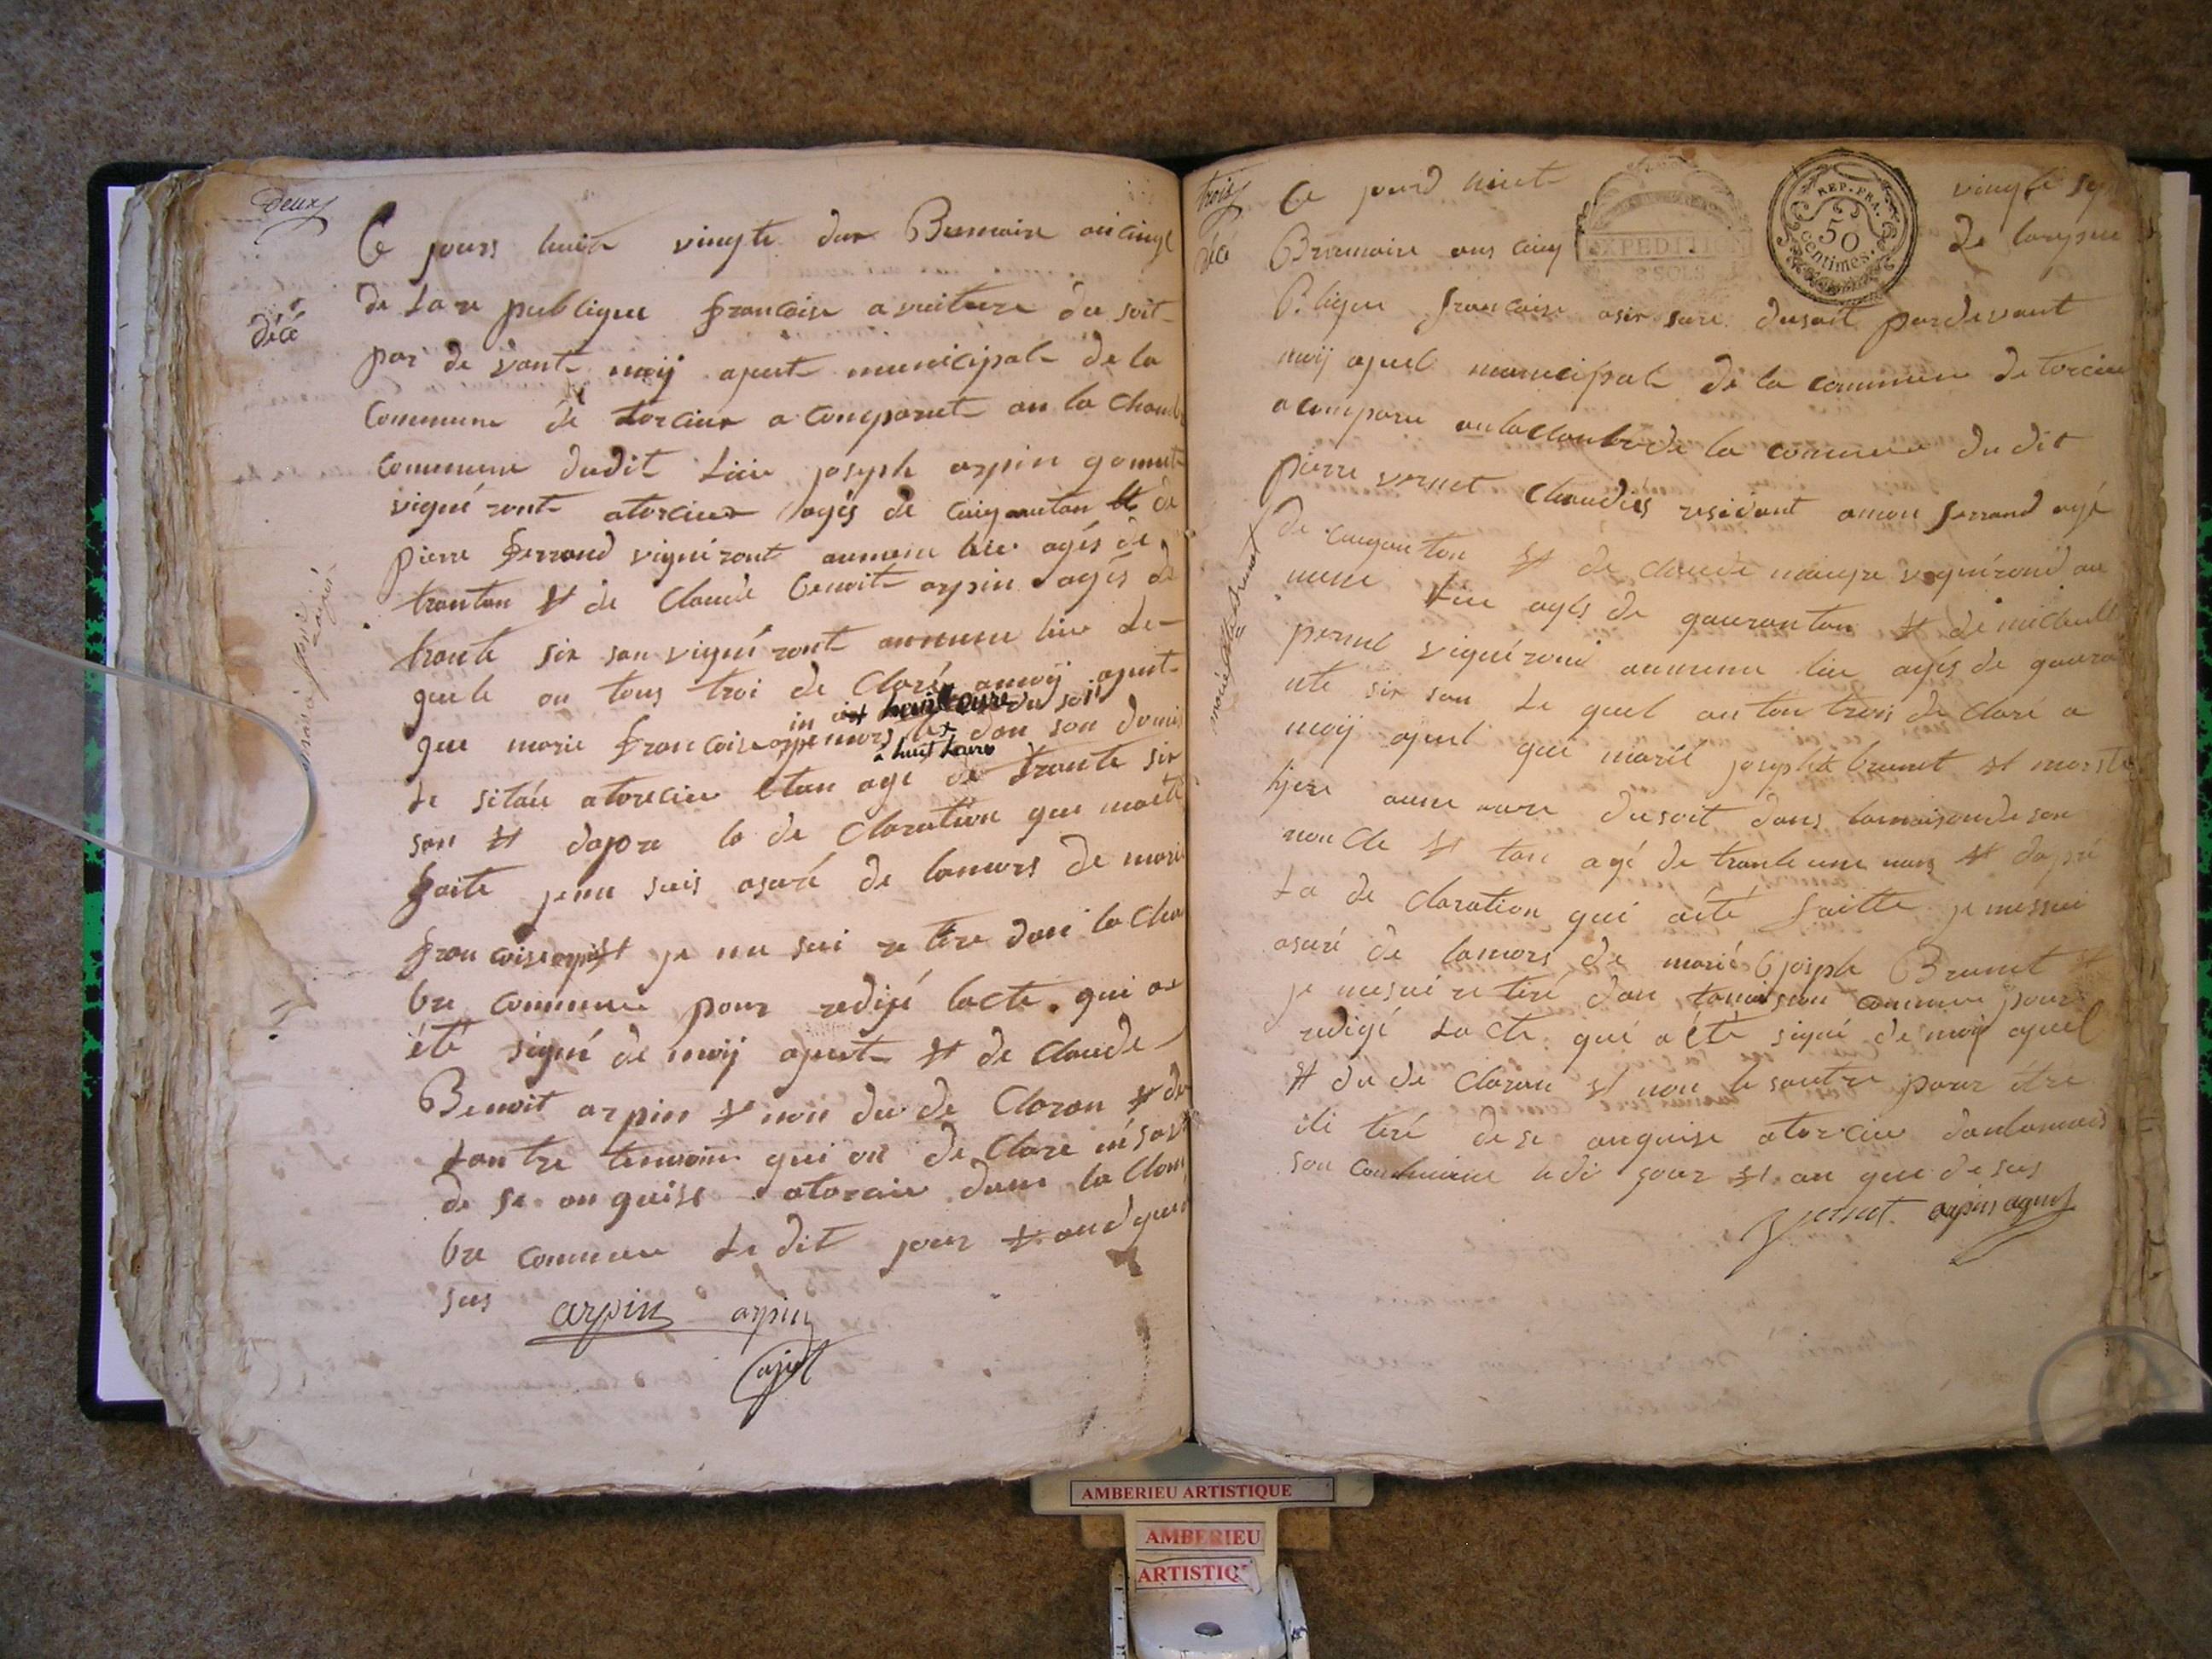 deux
Ce jours huit vingte dux Brumaire ancinq
de La re publique francaise a vuiture du soit
par de vant moÿ ajent municipal de la
Commune de torcieux a comparut an la Chamb
commune dudit Lieu joseph arpin
vigné ront atorcieu agés de cinquantan et de
pierre ferrand vigné ront aumeme lieu agés de
tranton et de Claude benoit arpin agés de
trante six san vigné ront aumeme lieu Le
quele on tous troi de Claré amoÿ ajent
in huit heure du soit
que marie francoise arpin mors dan son domi
a huit heures
Le située atorcieu etan agé de trante six
san et dapre la de Claration que
faite je me suis asuré de lamors de marie
fran coise arpin et je me sui re tire dan la cham
bre commune pour redijé lacte qui a
été signé de moÿ ajent et de Claude
Benoit arpin et non du de Claran et de
Lautre temoin qui on de Clare né savoi
de se anquise atorcieu dans la Cham
bre commune Le dit jour et and que de
sus
arpin arpin
ajent
décé
trois
décé
Ce jourd huit vingte sep
Brumaire ans cinq de larepu
EXPEDITION
2 SOLS
REP. FRA.
50
centimes
Blique francaise asix sure dusoit pardevant
moÿ ajent municipal de la commune de torcieu
acomparu anlachanbre de la commune du dit
pierre vernet Chaudiés residant amon ferrand agé
De cinquanton et de claude vignérond au
meme Lieu agés de quaranton et de michell
pernet vignérond aumeme lieu agés de quara
nte six san Le quel anton trois de Claré a
moÿ ajent que marié joseph brunet et morste
hjere aune aure dusoit dans lamaisondeson
noncle et tan agé de trante une nans et dapré
La de Claration qui aété faitte je messui
asuré de lamors de marié joseph Brunet et
je mesui re tiré dan lamaison commune pour
redigé Lacte qui a été signé de moÿ ajent
et du de Claran et non lesautre pour étre
ili téré de se anquise atorcieu danlamais
son commune ledi jour et an que de sus
vernet arpin agent